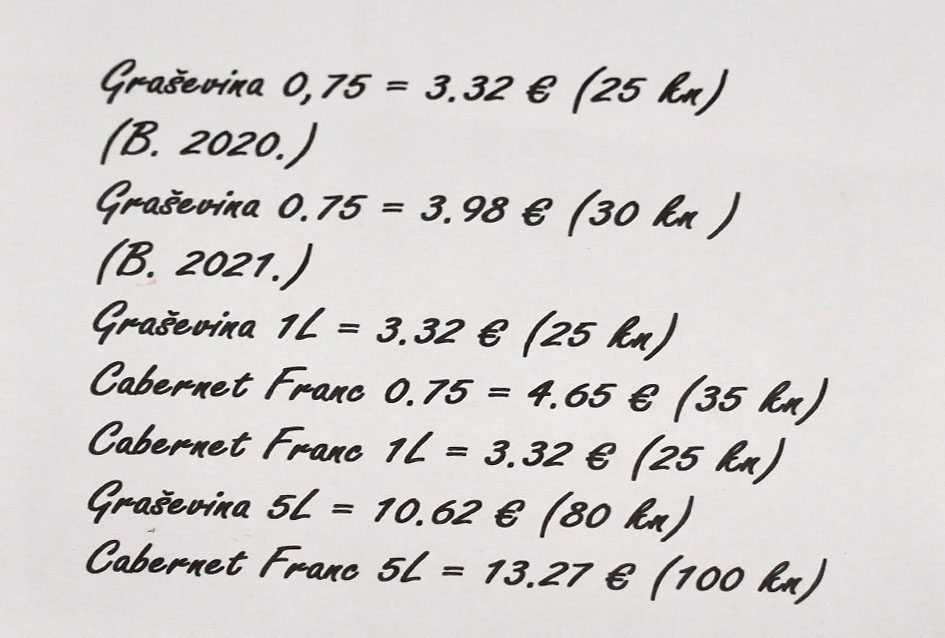 Graševina 0,75 = 3.32 € (25 kn)
(B. 2020.)
Graševina 0.75 = 3.98 € (30 kn )
(B. 2021.)
Graševina 1L = 3.32 € (25 kn)
Cabernet Franc 0.75 = 4.65 € (35 kn)
Cabernet Franc 1L = 3.32 € (25 kn)
Graševina 5L = 10.62 € (80 kn)
Cabernet Franc 5L = 13.27 € (100 kn)